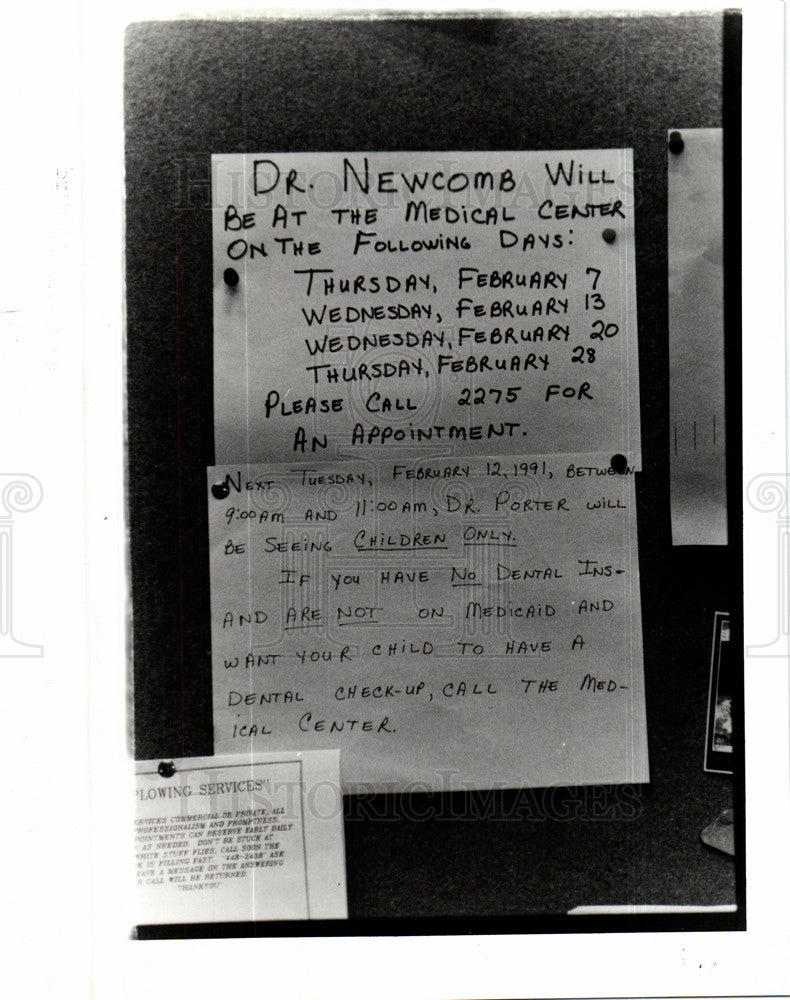 DR. NEWCOMB WILL
BE AT THE MEDICAL CENTER
ON THE FOLLOWING DAYS:
THURSDAY, FEBRUARY 7
WEDNESDAY, FEBRUARY 13
WEDNESDAY, FEBRUARY 20
THURSDAY, FEBRUARY 28
PLEASE CALL 2275 FOR
AN APPOINTMENT.
NEXT TUESDAY, FEBRUARY 12, 1991, BETWEEN
9:00AM AND 11:00AM, DR. PORTER WILL
BE SEEING CHILDREN ONLY.
IF YOU HAVE NO DENTAL INS-
AND ARE NOT ON MEDICAID AND
WANT YOUR CHILD TO HAVE A
DENTAL CHECK-UP, CALL THE MED-
ICAL CENTER.
PLOWING SERVICES"
ERVICES COMMERCIAL OR PRIVATE, ALL
ROFESSIONALISM AND PROMPTNESS.
POINTMENTS CAN RESERVE EARLY DAILY
AS NEEDED. DON'T BE STUCK AT
WHITE STUFF FLIES, CALL SOON THE
IS FILLING FAST. "448-2438" ASK
EAVE A MESSAGE ON THE ANSWERING
R CALL WILL BE RETURNED.
"THANKYOU"
HISTORIC IMAGES
HISTORIC IMAGES